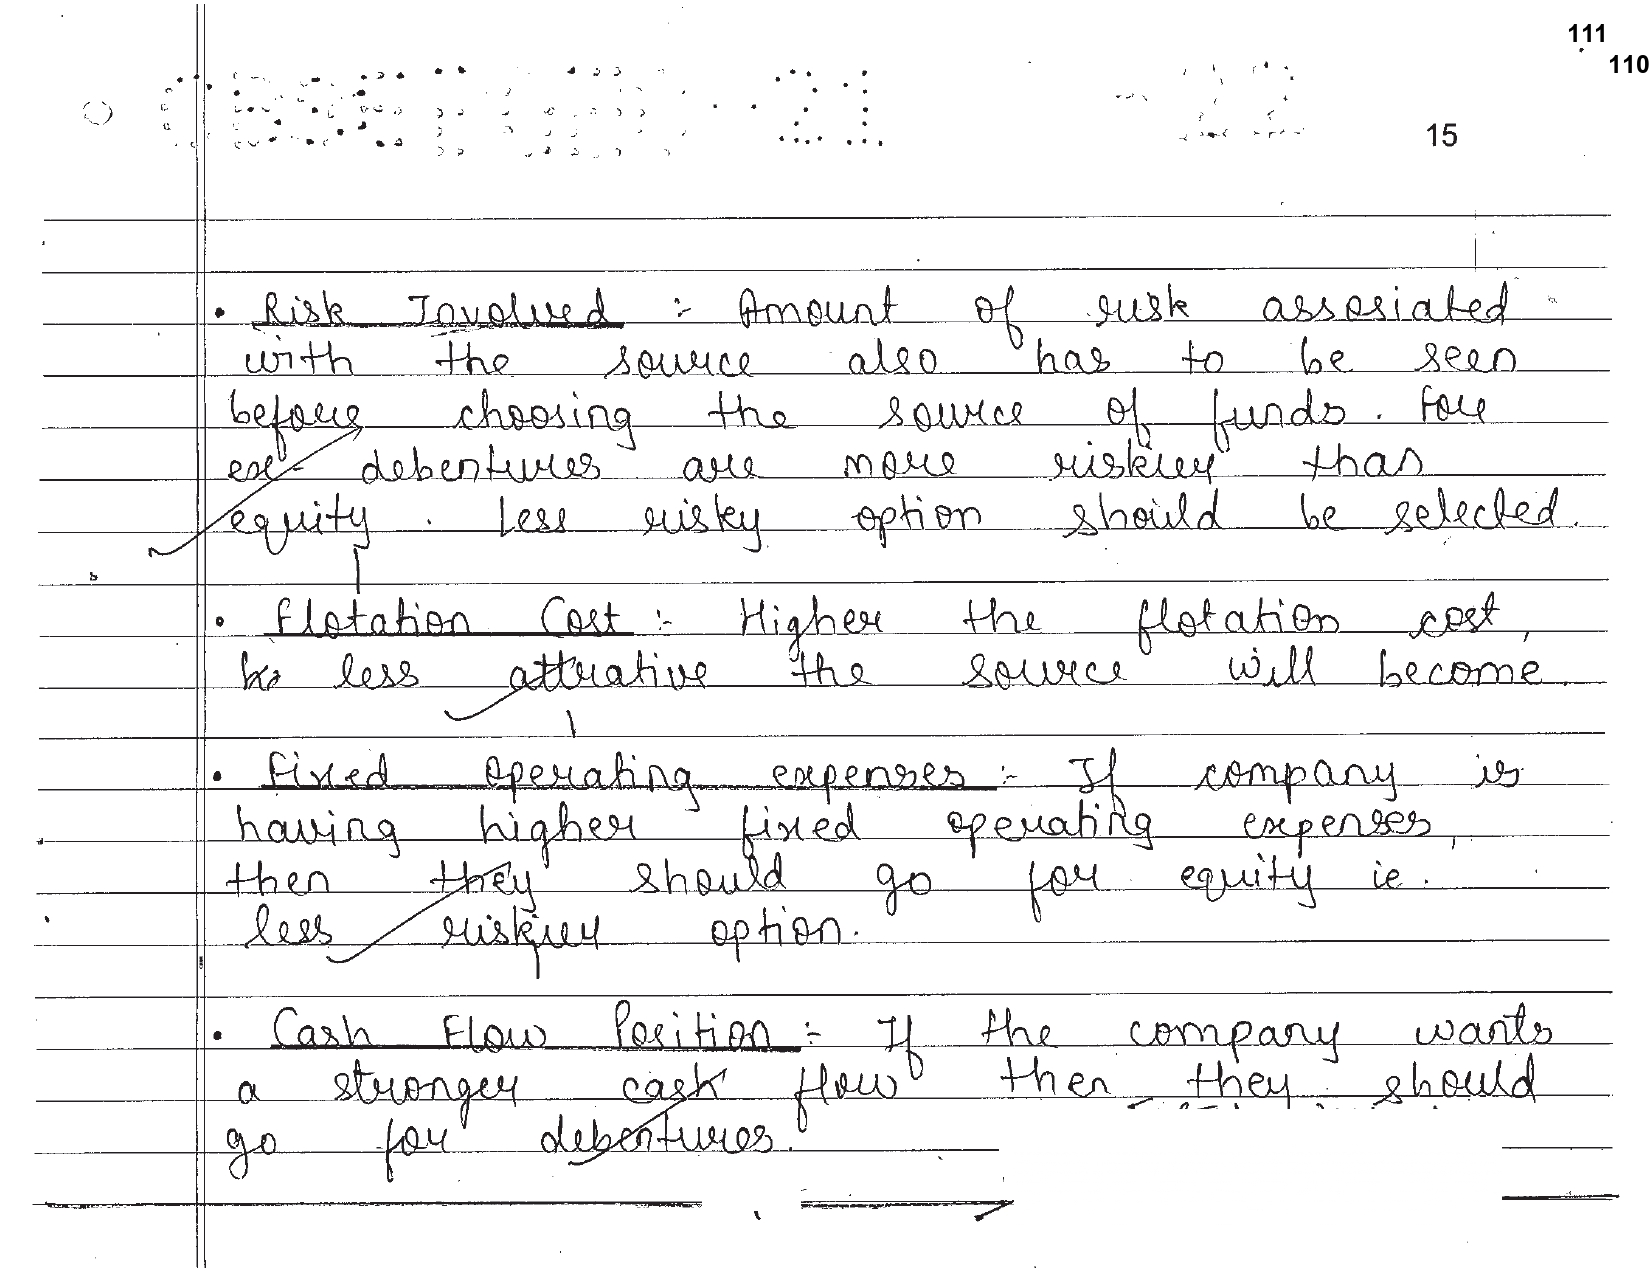 111
110
15
• Risk Involved :- Amount of risk assosiated
with the source also has to be seen
before choosing the source of funds. For
ex- debentures are more riskier than
equity. Less risky option should be selected.
• Flotation Cost :- Higher the flotation cost,
less attrative the source will become
• Fixed operating expenses :- If company is
having higher fixed operating expenses,
then they should go for equity ie.
less riskier option.
• Cash Flow Position :- If the company wants
a stronger cash flow then they should
go for debentures.